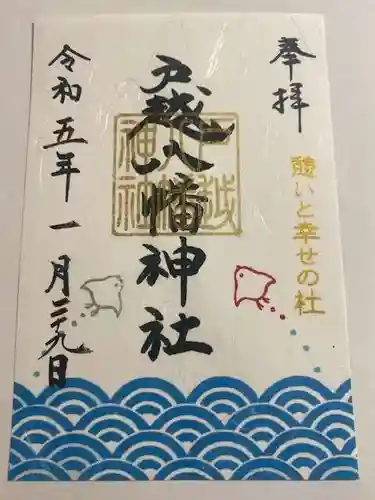 奉拝
憩いと幸せの杜
戸越八幡神社
戸越八幡神社
令和五年一月二十九日